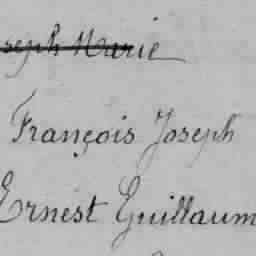 seph Marie
François Joseph
Ernest Guillaum